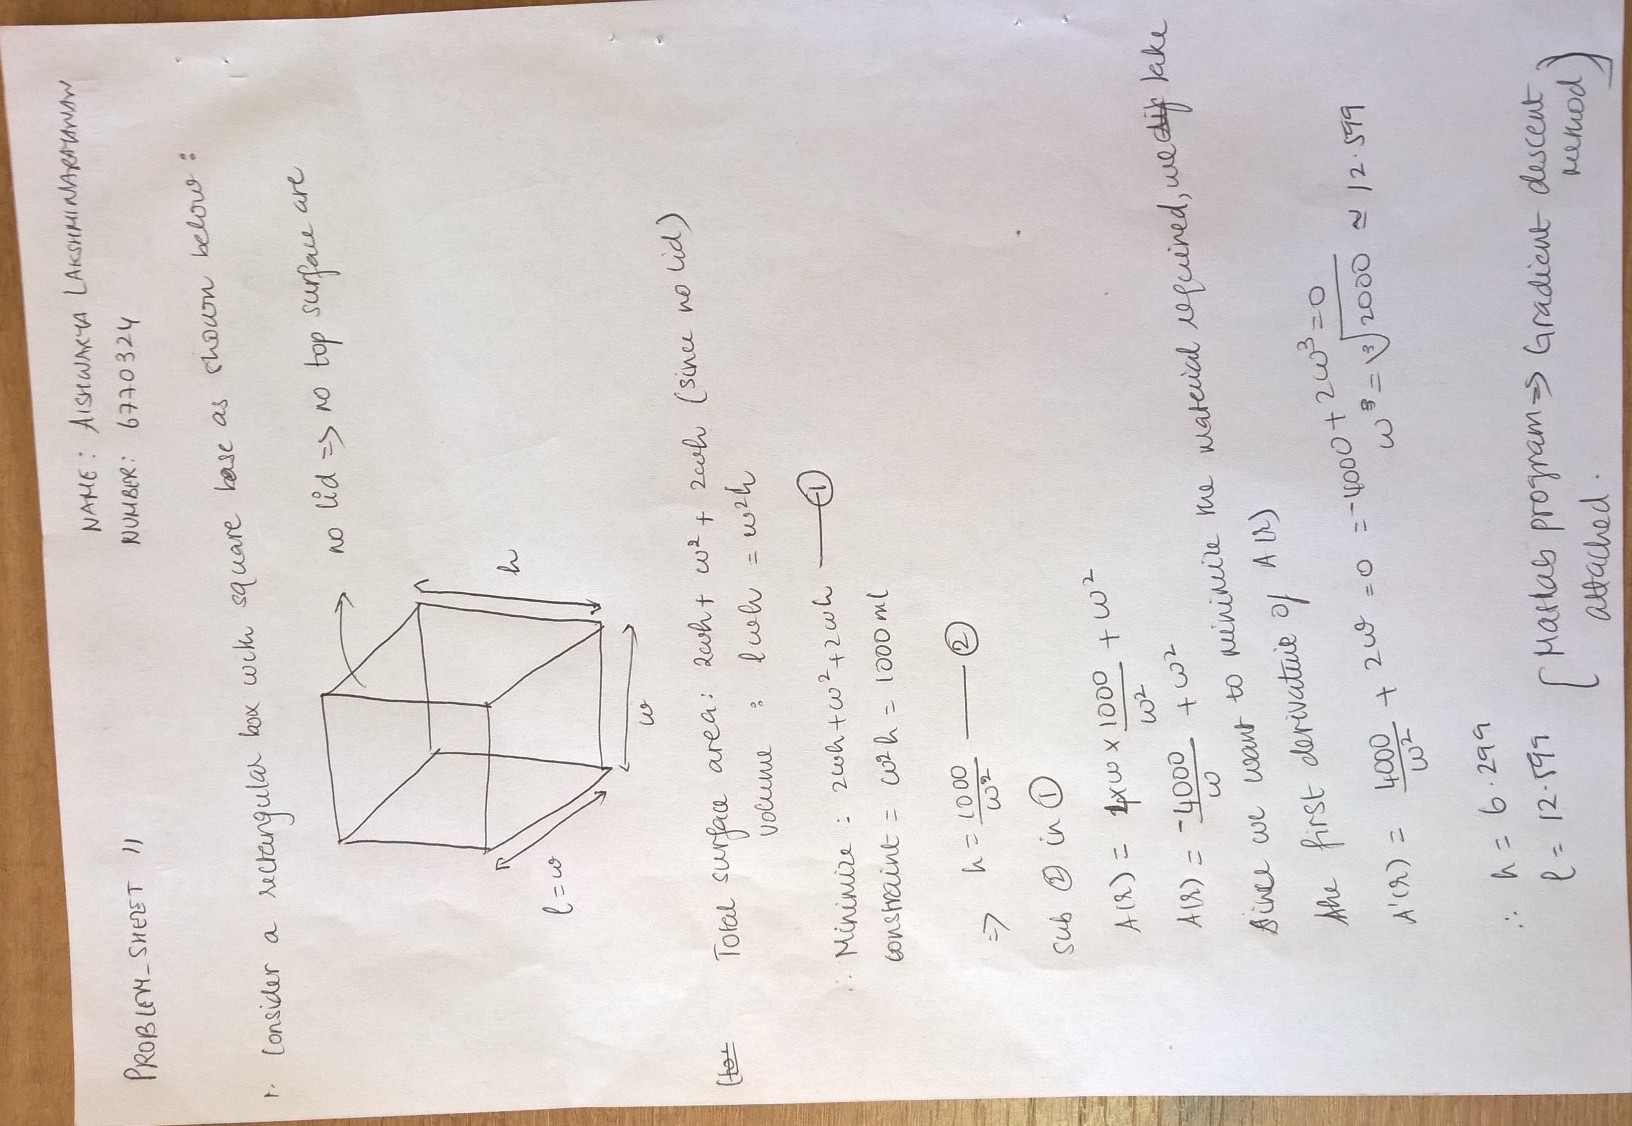 NAME: AISHWARYA LAKSHMINARAYANAN
PROBLEM_SHEET 11
NUMBER: 6770324
1. Consider a rectangular box with square base as shown below:
no lid => no top surface are
h
l=w
w
Total surface area: 2wh + w² + 2wh (since no lid)
volume : lwh = w²h
∴ Minimize : 2wh + w² + 2wh — ①
constraint = w²h = 1000 ml
=> h = 1000/w² — ②
sub ② in ①
A(r) = 4×w×1000/w² + w²
A(r) = -4000/w + w²
Since we want to minimize the material required, we take
the first derivative of A(r)
A'(r) = 4000/w² + 2w = 0 = -4000 + 2w³ = 0
w³ = ∛2000 ≈ 12.599
∴ h = 6.299
l = 12.599
[Matlab program => Gradient descent method]
attached.